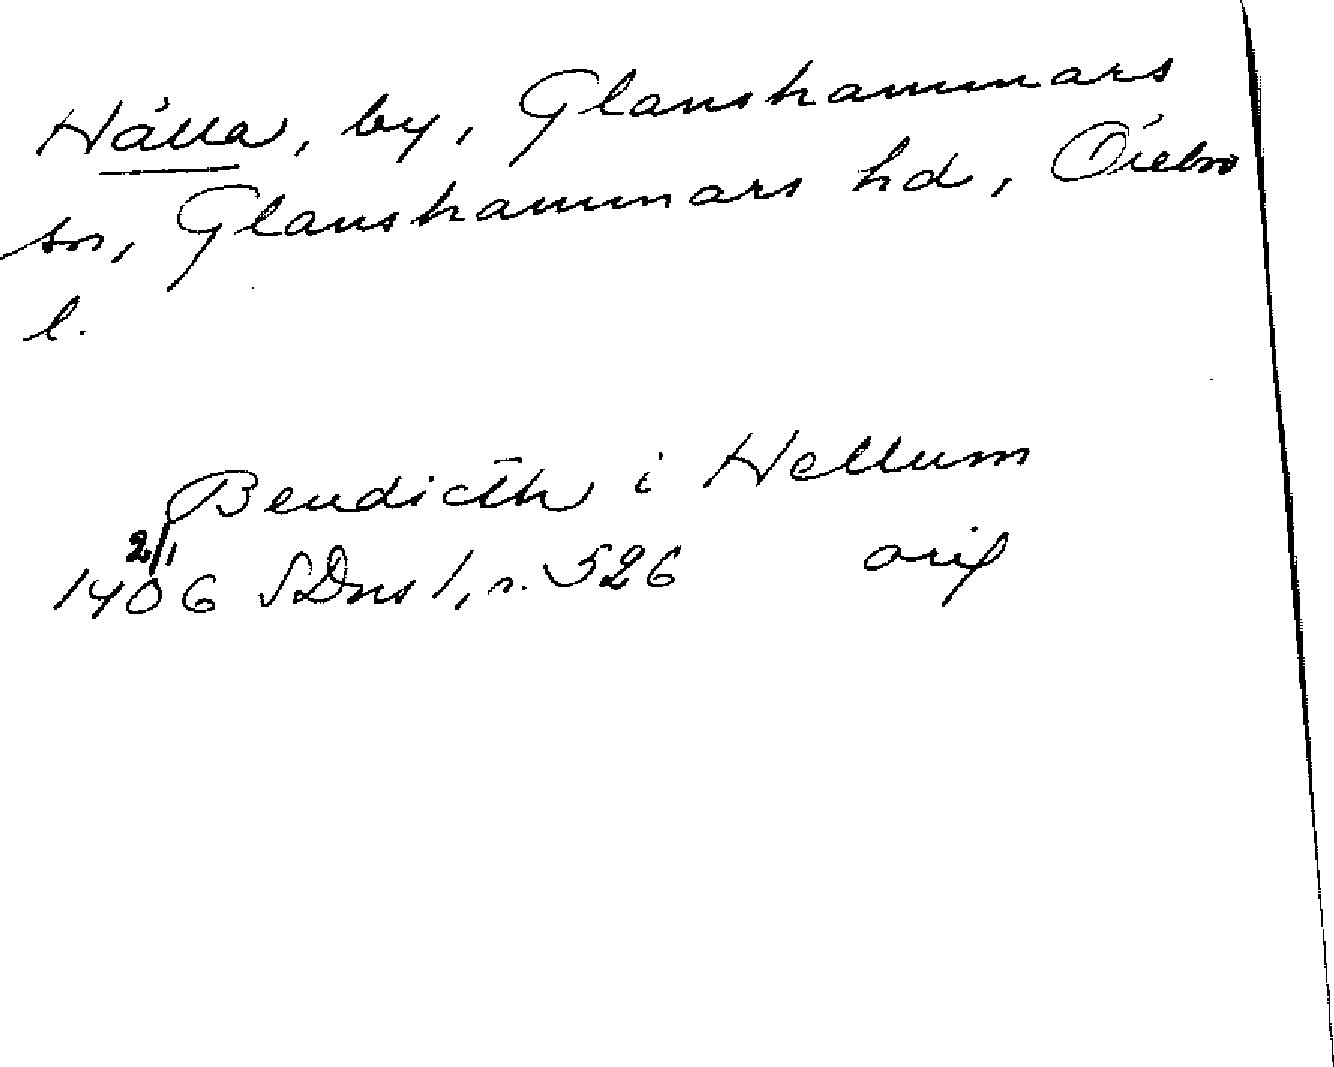 Hälla, by, Glanshammars
sn, Glanshammars hd, Örebro
l.
Bendicth i Hellum
2/1
1406 SDns 1, s. 526 orig